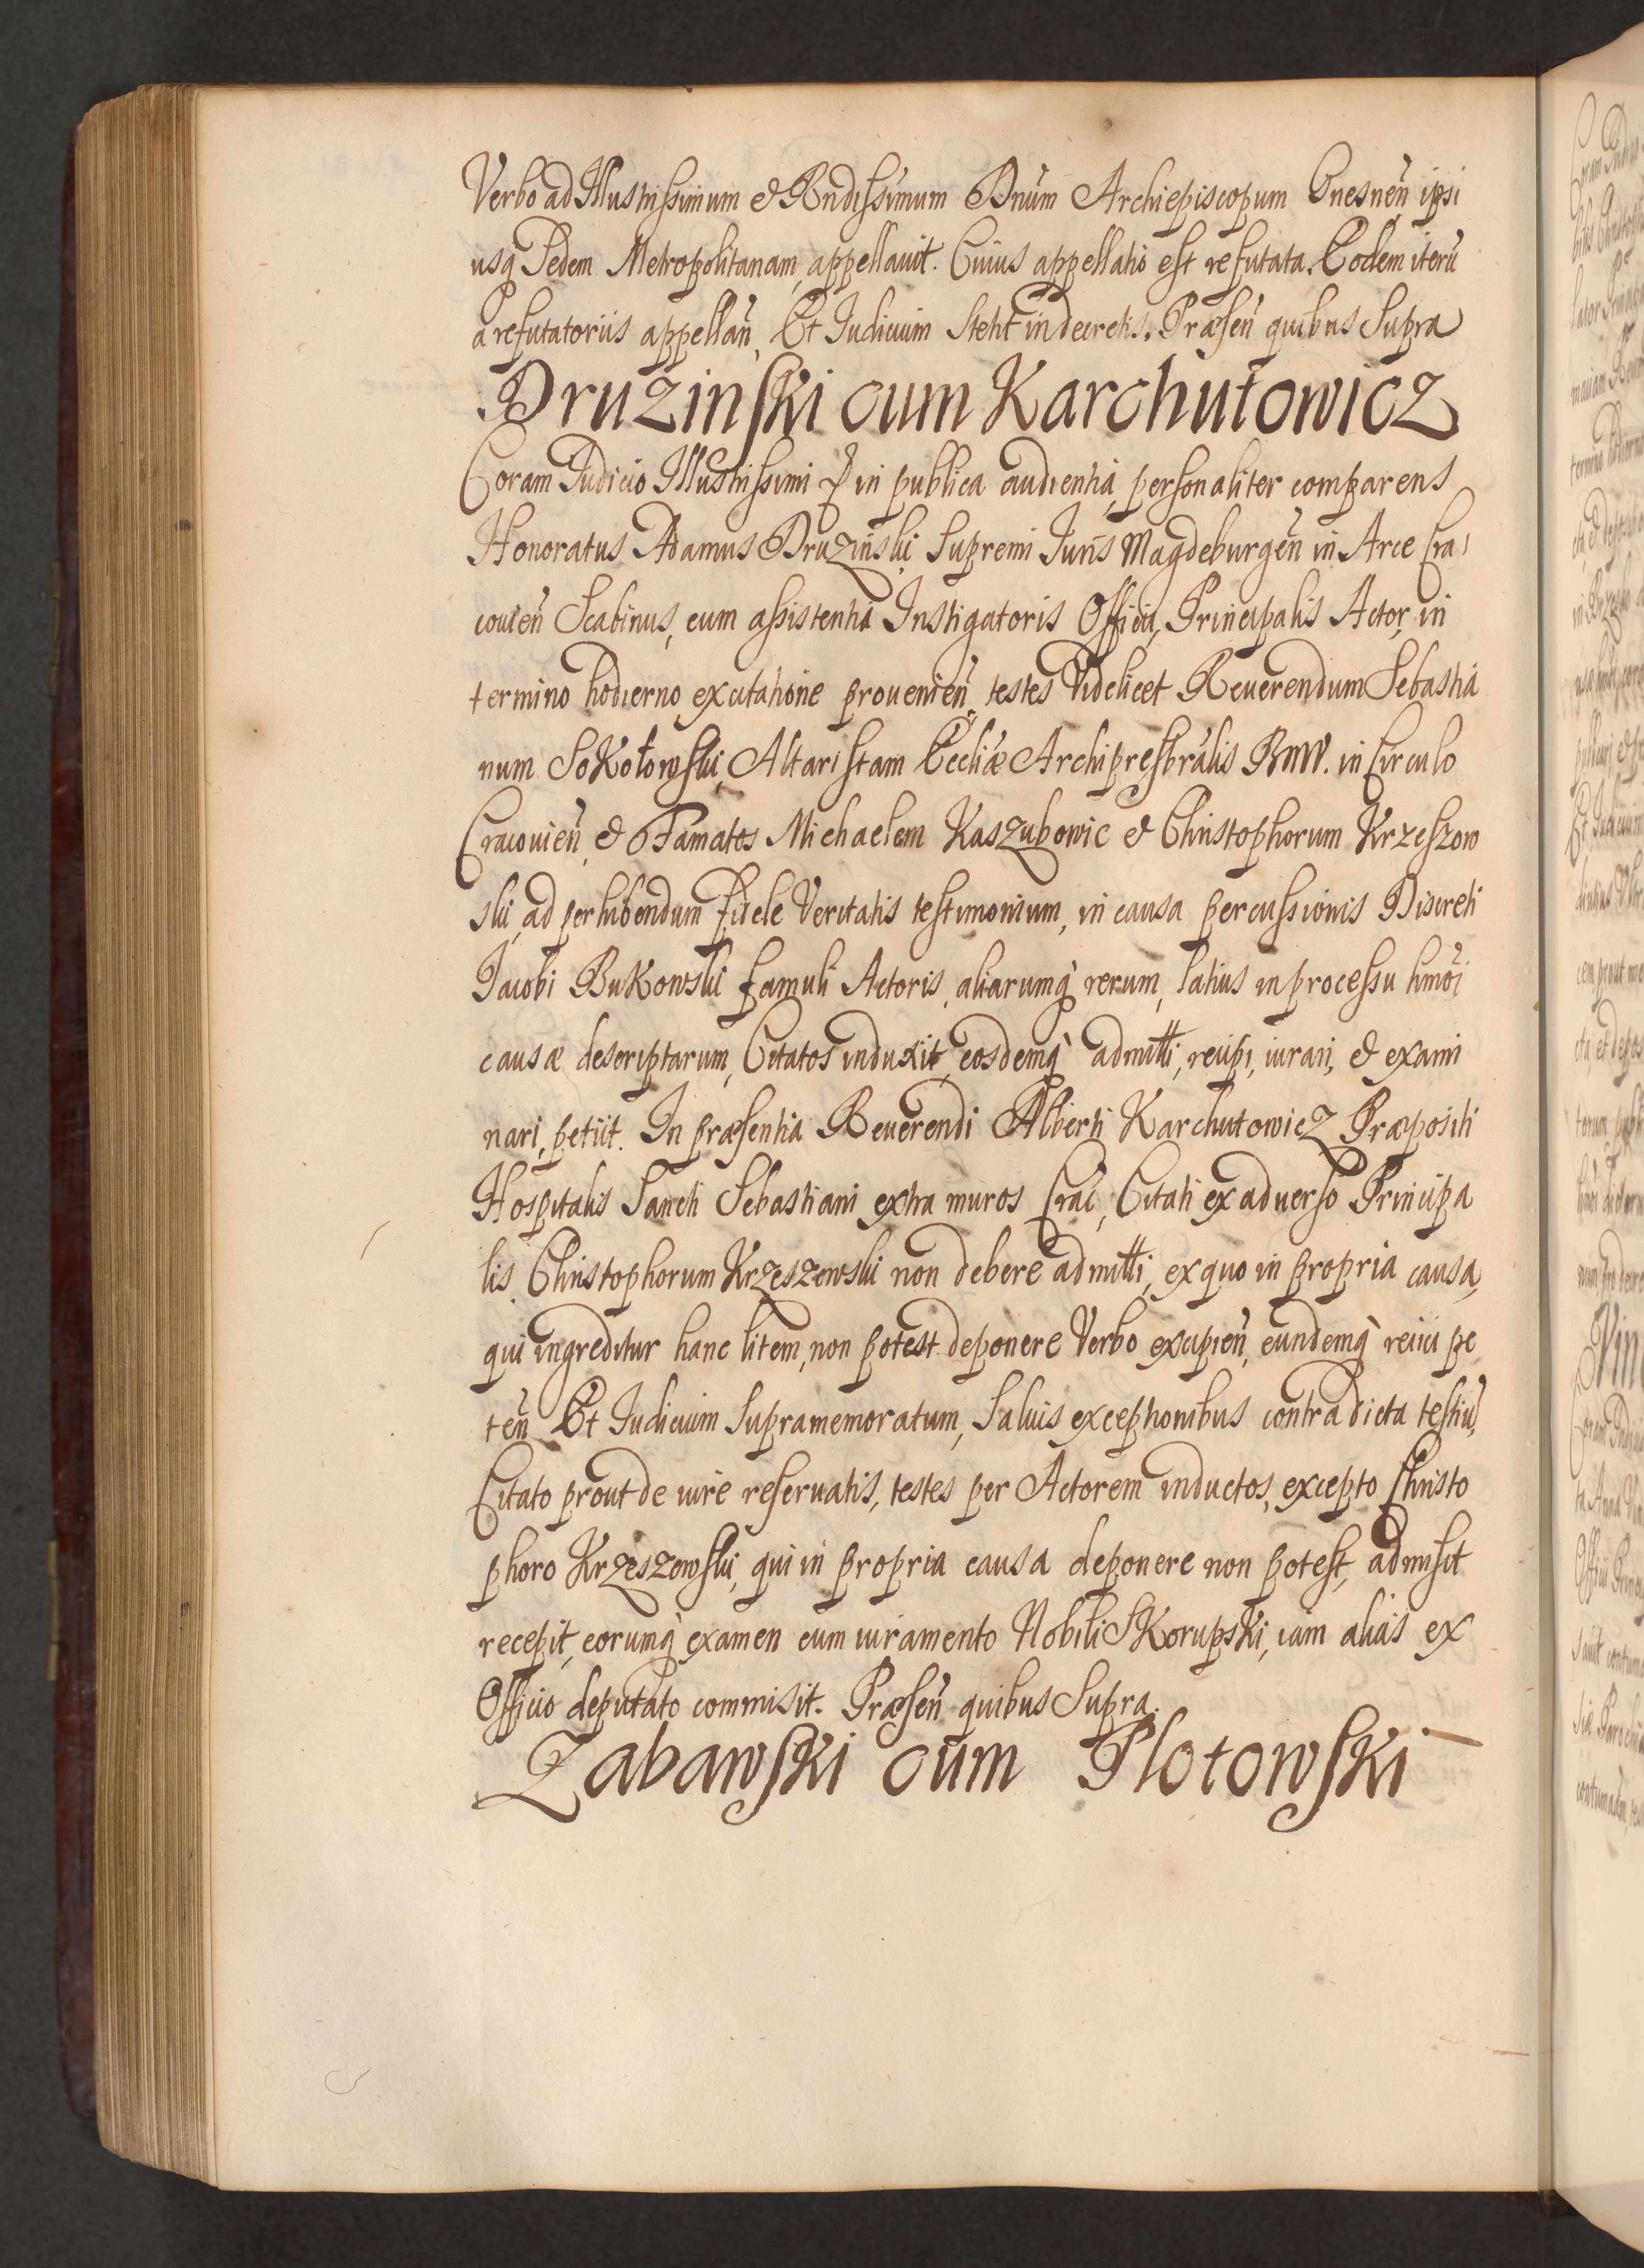 Verbo ad Illustrissimum & Rndissimum Dnum Archiepiscopum Gnesnen ipsi
usq Sedem Metropolitanam, appellauit. Cuius appellatio est refutata. Eodem iterū
a refutatoriis appellan, Et Iudicium stetit in decretis. Præsen quibus supra
Druzinski cum Karchutowicz
Coram Iudicio Illustrissimi & in publica audientia, personaliter comparens
Honoratus Adamus Druzinski, Supremi Iuris Magdeburgen in Arce Cra
couien Scabinus, cum assistentia Instigatoris Officii, Principalis Actor, in
termino hodierno ex citatione prouenien, testes Videlicet Reuerendum Sebastia
num Sokołowski, Altaristam Eccliæ Archipresbralis BMV. in Circulo
Cracouien, & Famatos Michaelem Kaszubowic & Christophorum Krzeszow
ski, ad perhibendum fidele Veritatis testimonium, in causa percussionis Discreti
Iacobi Bukowski famuli Actoris, aliarumq rerum, latius in processu hmoi
causæ descriptarum, Citatos induxit, eosdemq admitti, recipi, iurari, & exami
nari, petiit. In præsentia Reuerendi Alberti Karchutowicz Præpositi
Hospitalis Sancti Sebastiani extra muros Crac, Citati ex aduerso Principa
lis, Christophorum Krzeszewski non debere admitti, ex quo in propria causa,
qui ingreditur hanc litem, non potest deponere Verbo excipien, eundemq reiici pe
ten Et Iudicium supramemoratum, Saluis exceptionibus contra dicta testiū,
Citato prout de iure reseruatis, testes per Actorem inductos, excepto Christo
phoro Krzeszewski, qui in propria causa deponere non potest, admisit
recepit, eorumq examen cum iuramento Nobili Skorupski, iam alias ex
Officio deputato commisit. Præsen quibus Supra.
Zabawski cum Plotowski